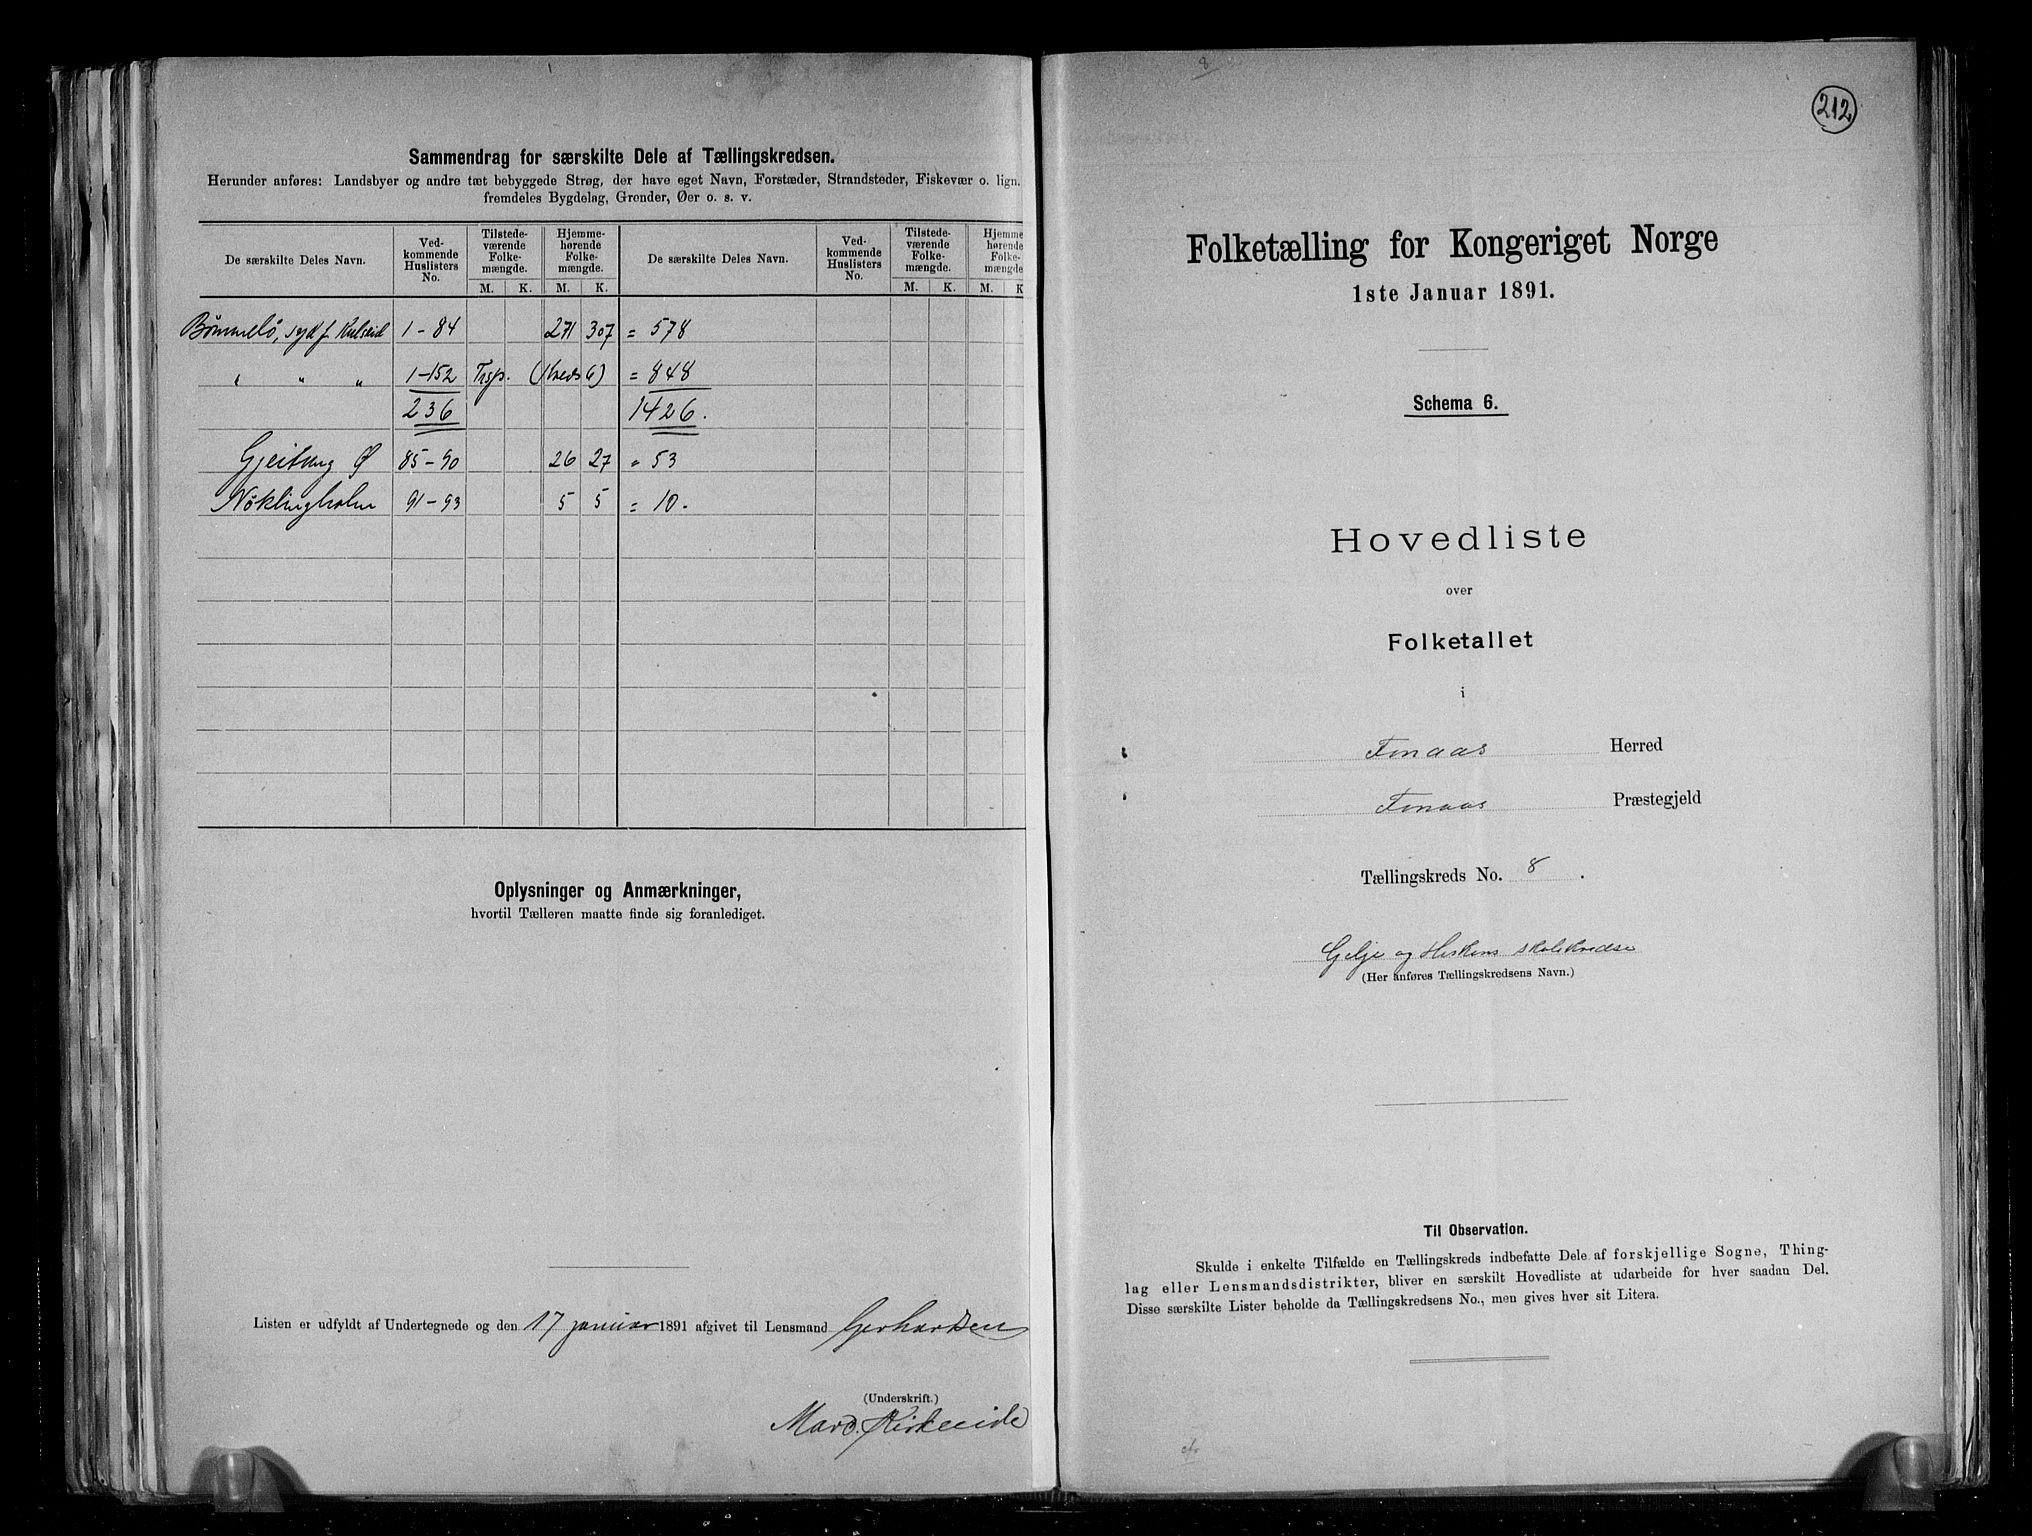 Sammendrag for særskilte Dele af Tællingskredsen.
Herunder anføres: Landsbyer og andre tæt bebyggede Strøg, der have eget Navn, Forstæder, Strandsteder, Fiskevær o. lign.
fremdeles Bygdelag, Grender, Øer o. s. v.
De særskilte Deles Navn. Ved-kommende Huslisters No. Tilstede-værende Folke-mængde. Hjemme-hørende Folke-mængde. De særskilte Deles Navn. Ved-kommende Huslisters No. Tilstede-værende Folke-mængde. Hjemme-hørende Folke-mængde
M. K. M. K. M. K. M. K
Bømmelö, syd f. 1-84 271 307 = 578
„ „ „ 1-152 (Kreds 6) = 848
236 1426.
Gjeitung Ø 85-90 26 27 " 53
Nöklingholm 91-93 5 5 = 10.
Oplysninger og Anmærkninger,
hvortil Tælleren maatte finde sig foranlediget.
Listen er udfyldt af Undertegnede og den 17 januar 1891 afgivet til Lensmand Gerhardsen
(Underskrift.)
8
212
Folketælling for Kongeriget Norge
1ste Januar 1891.
Schema 6.
Hovedliste
over
Folketallet
i
Finaas Herred
Finaas Præstegjeld
Tællingskreds No. 8.
Gilje og Hiskens skolekredse
(Her anføres Tællingskredsens Navn.)
Til Observation.
Skulde i enkelte Tilfælde en Tællingskreds indbefatte Dele af forskjellige Sogne, Thing-
lag eller Lensmandsdistrikter, bliver en særskilt Hovedliste at udarbeide for hver saadan Del.
Disse særskilte Lister beholde da Tællingskredsens No., men gives hver sit Litera.